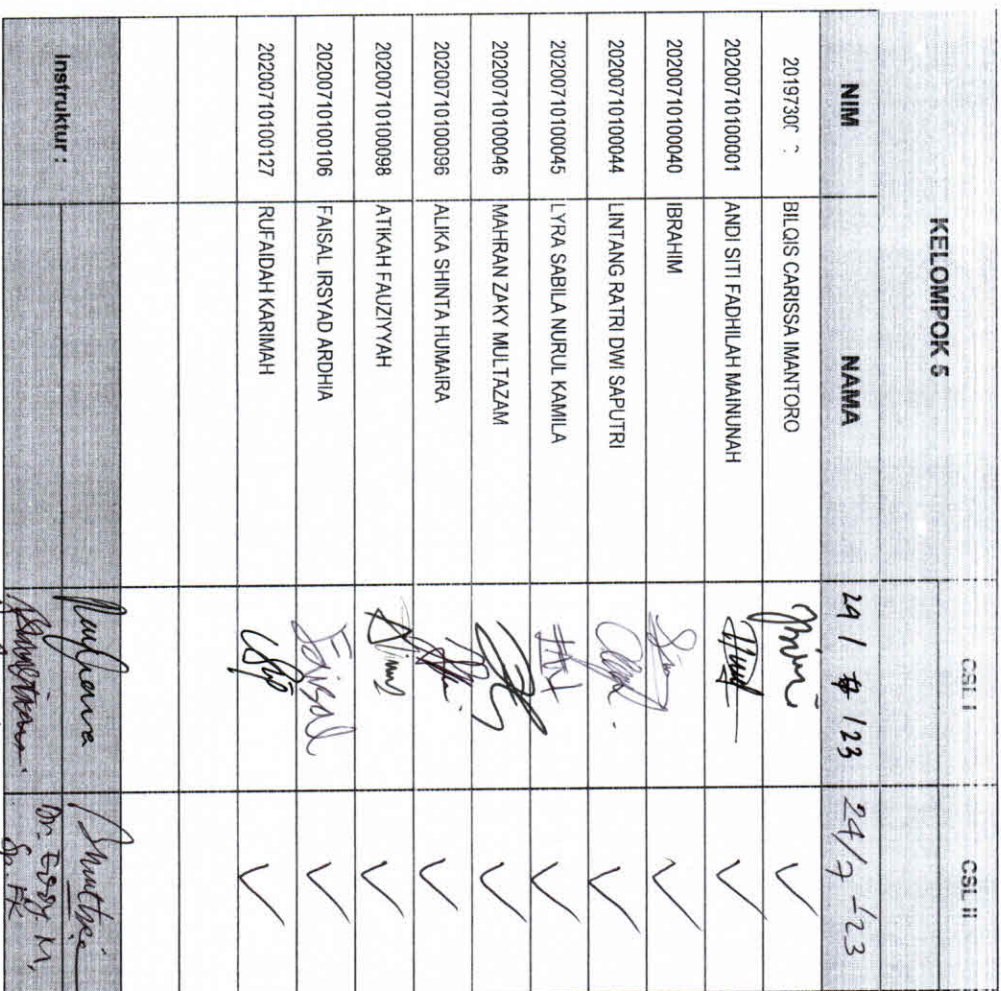 KELOMPOK 5 CSL I CSL II
NIM NAMA 24/7-23
BILQIS CARISSA IMANTORO
20200710100001 ANDI SITI FADHILAH MAINUNAH
20200710100040 IBRAHIM
20200710100044 LINTANG RATRI DWI SAPUTRI
20200710100045 LYRA SABILA NURUL KAMILA
20200710100046 MAHRAN ZAKY MULTAZAM
20200710100096 ALIKA SHINTA HUMAIRA
20200710100098 ATIKAH FAUZIYYAH
20200710100106 FAISAL IRSYAD ARDHIA Faisal
20200710100127 RUFAIDAH KARIMAH
Instruktur :